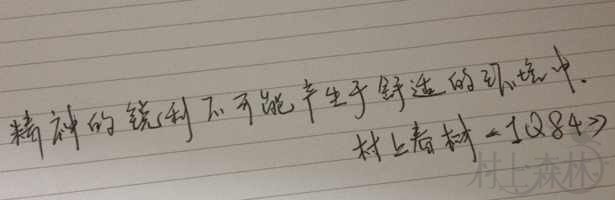 精神的锐利不可能产生于舒适的环境中.
村上春树《1Q84》
村上森林